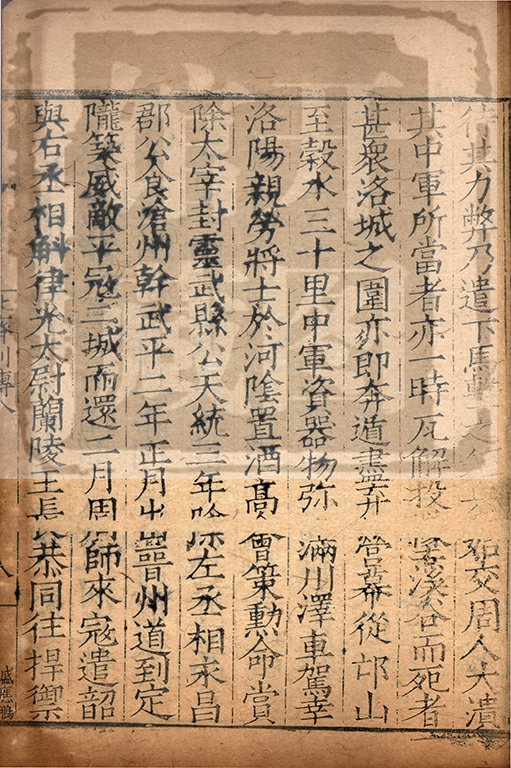 待其力弊乃遣下馬擊之交周人大潰
其中軍所當者亦一時瓦解投墜溪谷而死者
甚衆洛城之圍亦即奔遁盡弃營幕從邙山
至穀水三十里中軍資器物弥滿川澤車駕幸
洛陽親勞將士於河陰置酒髙會策勲命賞
除太宰封靈武縣公天統三年除左丞相永昌
郡公食滄州幹武平二年正月出晉州道到定
隴築威敵平寇二城而還二月周師來寇遣韶
與右丞相斛律光太尉蘭陵王長恭同往捍禦
盛應鵬